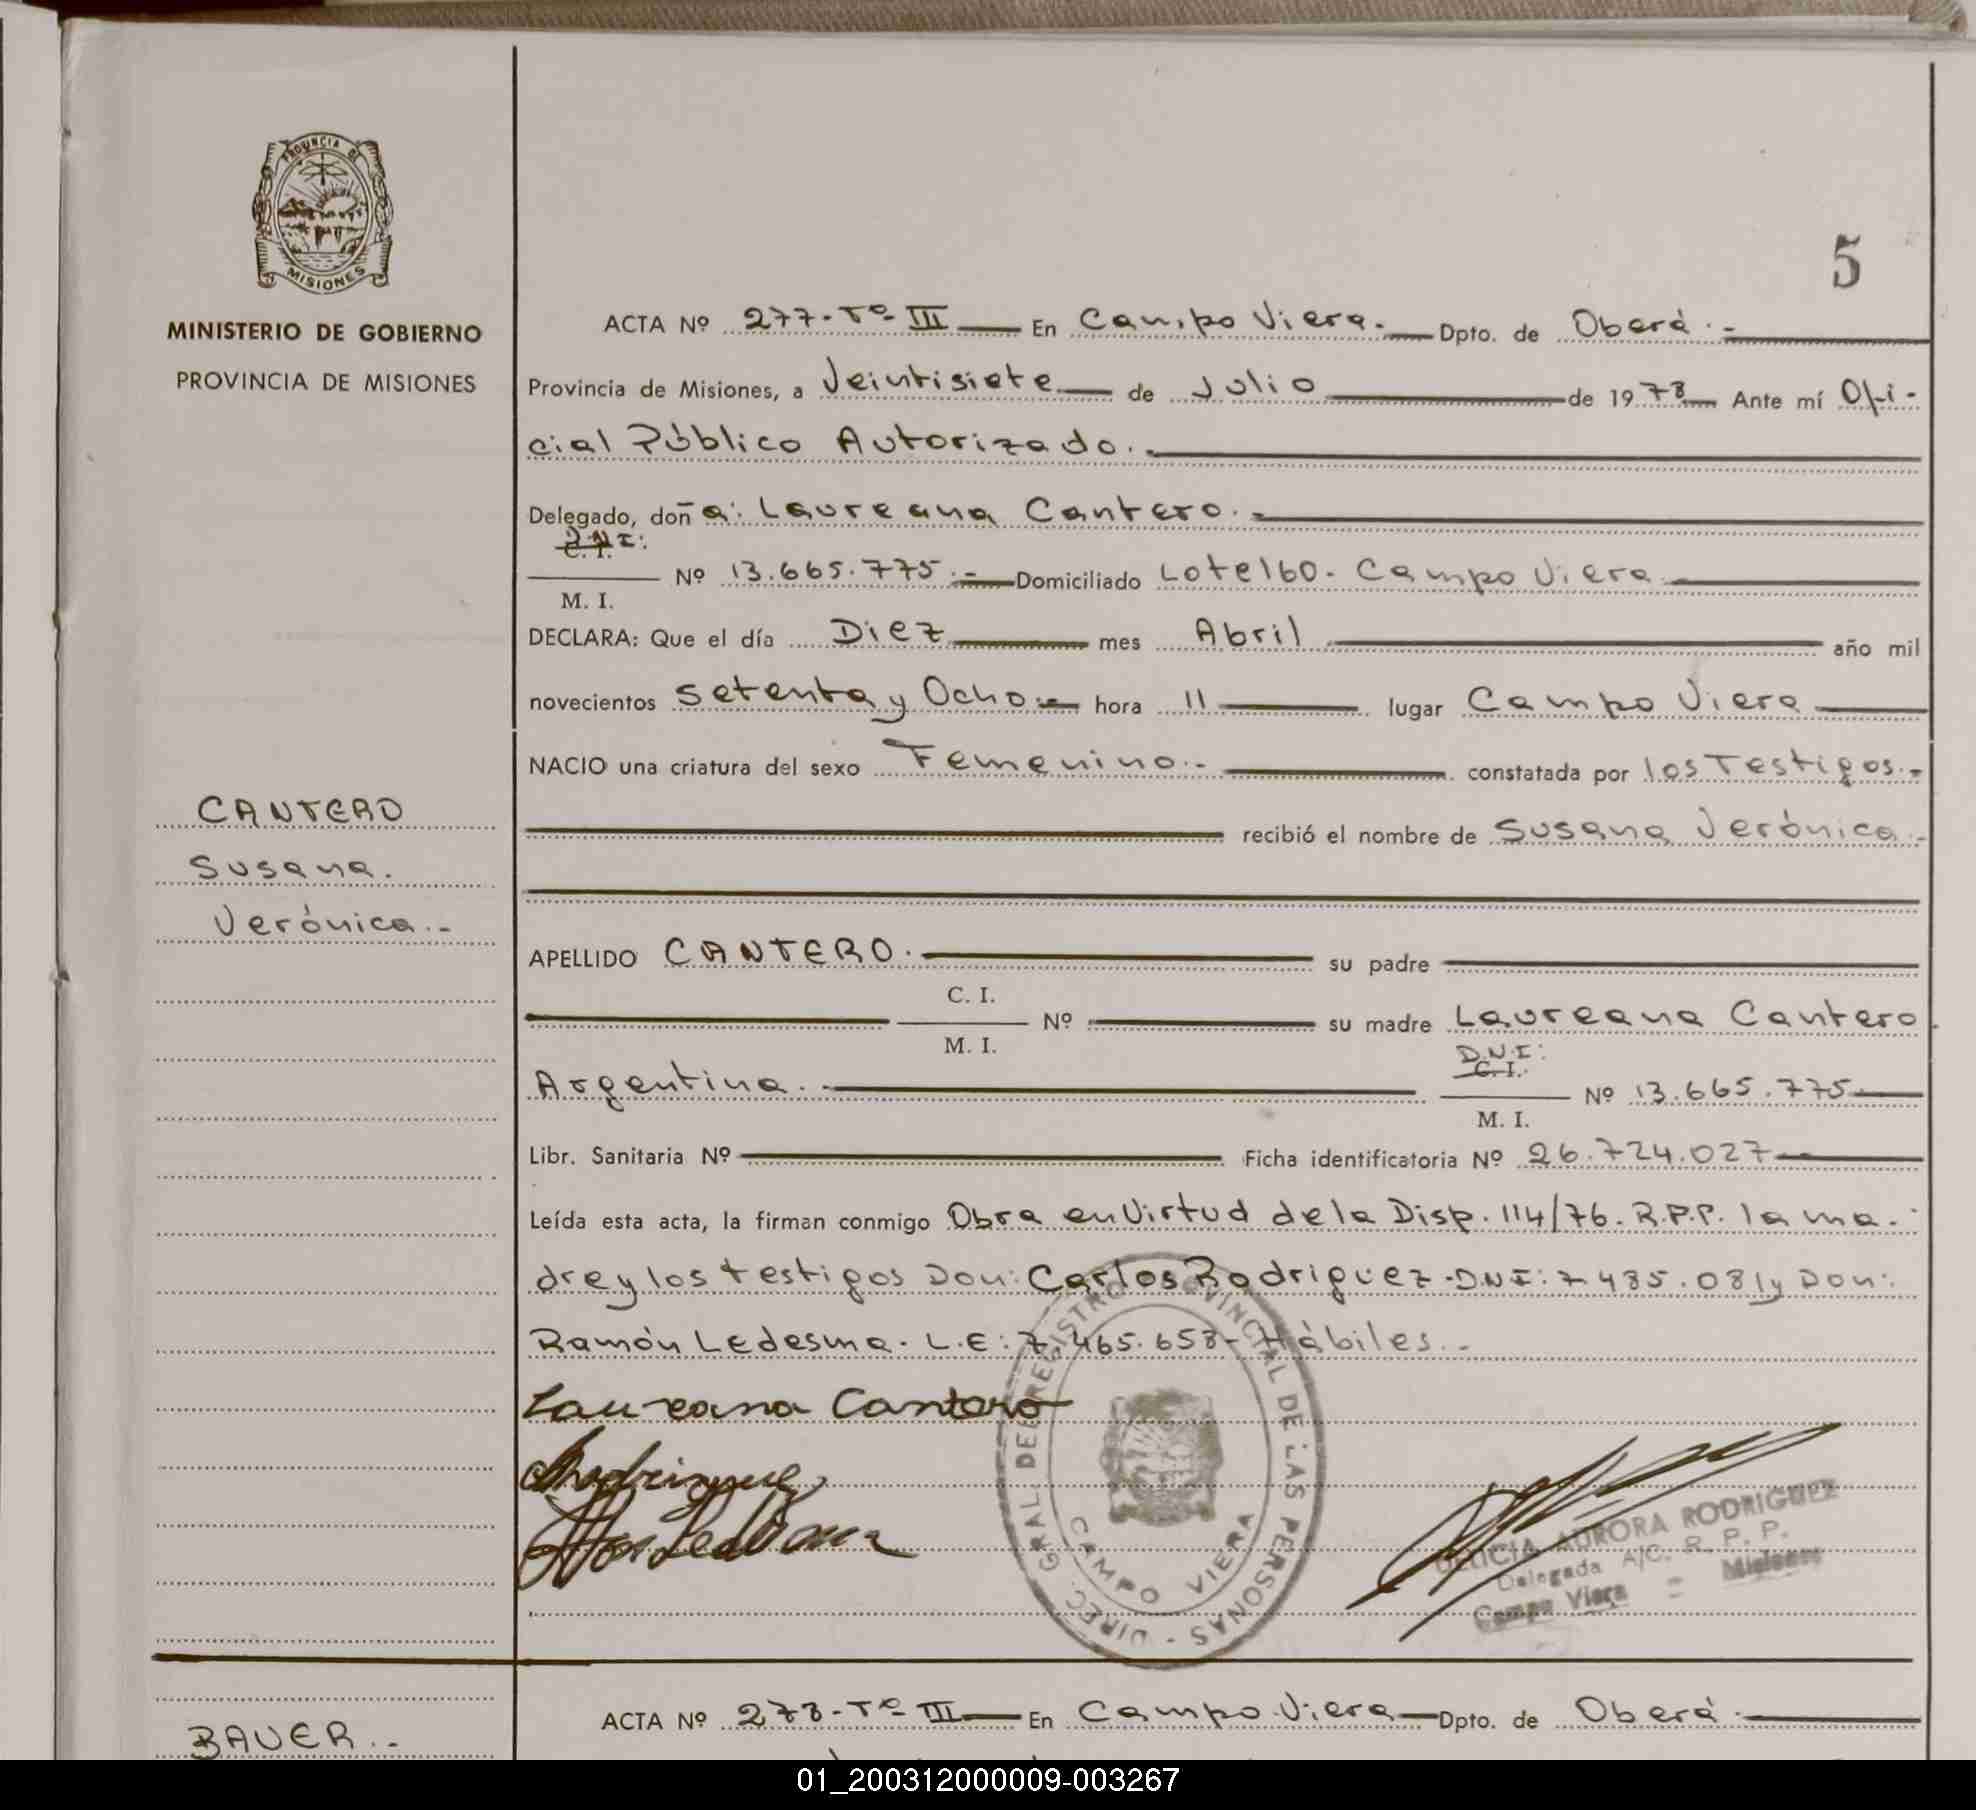 PROVINCIA DE
MISIONES
MINISTERIO DE GOBIERNO
PROVINCIA DE MISIONES
5
ACTA Nº 277-Tº-III En Campo Viera.- Dpto. de Oberá.-
Provincia de Misiones, a Veintisiete de Julio de 1978 Ante mí Ofi-
cial Público Autorizado.-
Delegado, doña: Laureana Cantero.-
D.N.I:
C. I.
Nº 13.665.775.- Domiciliado Lote 160. Campo Viera
M. I.
DECLARA: Que el día Diez mes Abril año mil
novecientos Setenta y Ocho.- hora 11 lugar Campo Viera
NACIO una criatura del sexo Femenino.- constatada por los Testigos.-
recibió el nombre de Susana Verónica.-
CANTERO
Susana.
Verónica.-
APELLIDO CANTERO. su padre
C. I.
Nº su madre Laureana Cantero.
M. I.
D.N.I:
C. I.
Argentina.- Nº 13.665.775
M. I.
Libr. Sanitaria Nº Ficha identificatoria Nº 26.724.027
Leída esta acta, la firman conmigo Obra en Virtud de la Disp. 114/76. R.P.P. la ma-
dre y los testigos Don: Carlos Rodriguez-D.N.I: 7485.081 y Don:
Ramón Ledesma. L.E: 7.465.658- Hábiles.-
Laureana Cantero
DIREC. GRAL. DEL REGISTRO PROVINCIAL DE LAS PERSONAS -
CAMPO VIERA
AURORA RODRIGUEZ
Delegada A/C. R. P. P.
Campo Viera - Misiones
ACTA Nº 278-Tº III En Campo Viera Dpto. de Oberá.
BAUER.-
01_200312000009-003267